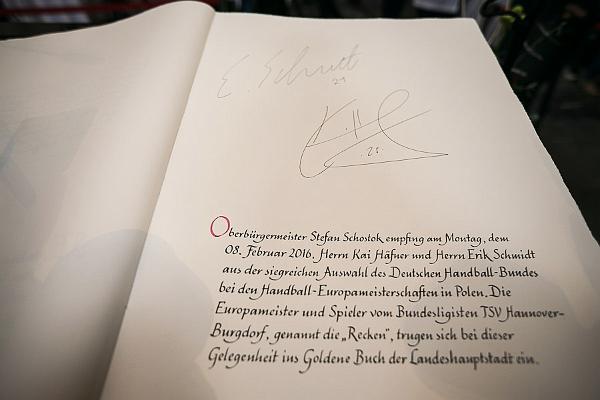 E. Schmidt
29
K. H
.23.
Oberbürgermeister Stefan Schostok empfing am Montag, dem
08. Februar 2016, Herrn Kai Häfner und Herrn Erik Schmidt
aus der siegreichen Auswahl des Deutschen Handball-Bundes
bei den Handball-Europameisterschaften in Polen. Die
Europameister und Spieler vom Bundesligisten TSV Hannover-
Burgdorf, genannt die „Recken", trugen sich bei dieser
Gelegenheit ins Goldene Buch der Landeshauptstadt ein.